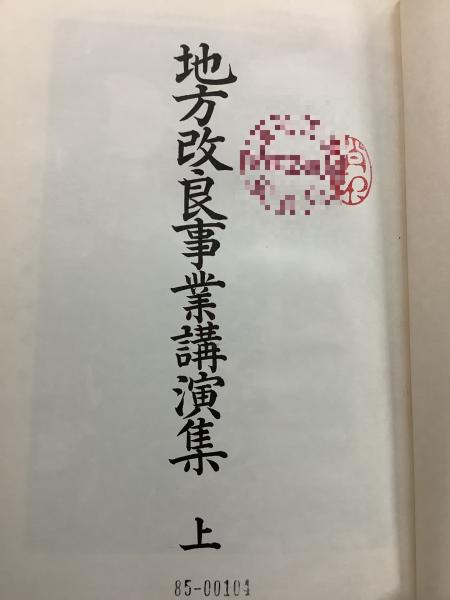 地方改良事業講演集 上
85-00104